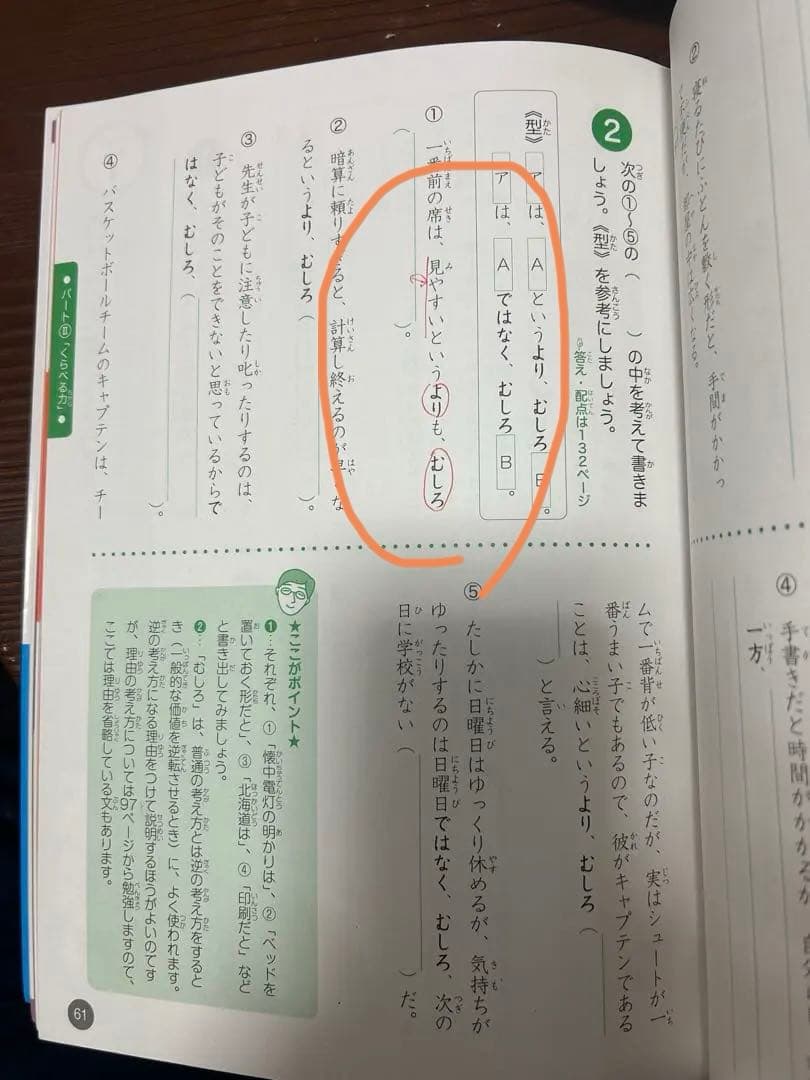 ② 寝るたびにふとんを敷く形だと、手間がかかっ
④ 手書きだと時間がかかるが、
一方、
2 次の①〜⑤の（　　）の中を考えて書きま
しょう。《型》を参考にしましょう。
答え・配点は132ページ
《型》
アは、Aというより、むしろB。
アは、Aではなく、むしろB。
① 一番前の席は、見やすいというよりも、むしろ
（　　）。
② 暗算に頼りすぎると、計算し終えるのが早くな
るというより、むしろ（　　）。
③ 先生が子どもに注意したり叱ったりするのは、
子どもがそのことをできないと思っているからで
はなく、むしろ、（　　）。
④ バスケットボールチームのキャプテンは、チー
ムで一番背が低い子なのだが、実はシュートが一
番うまい子でもあるので、彼がキャプテンである
ことは、心細いというより、むしろ（
　　）と言える。
⑤ たしかに日曜日はゆっくり休めるが、気持ちが
ゆったりするのは日曜日ではなく、むしろ、次の
日に学校がない（　　）だ。
★ここがポイント★
❶…それぞれ、①「懐中電灯の明かりは」、②「ベッドを
置いておく形だと」、③「北海道は」、④「印刷だと」など
と書き出してみましょう。
❷…「むしろ」は、普通の考え方とは逆の考え方をすると
き（一般的な価値を逆転させるとき）に、よく使われます。
逆の考え方になる理由をつけて説明するほうがよいのです
が、理由の考え方については97ページから勉強しますので、
ここでは理由を省略している文もあります。
●パートⅡ「くらべる力」●
61